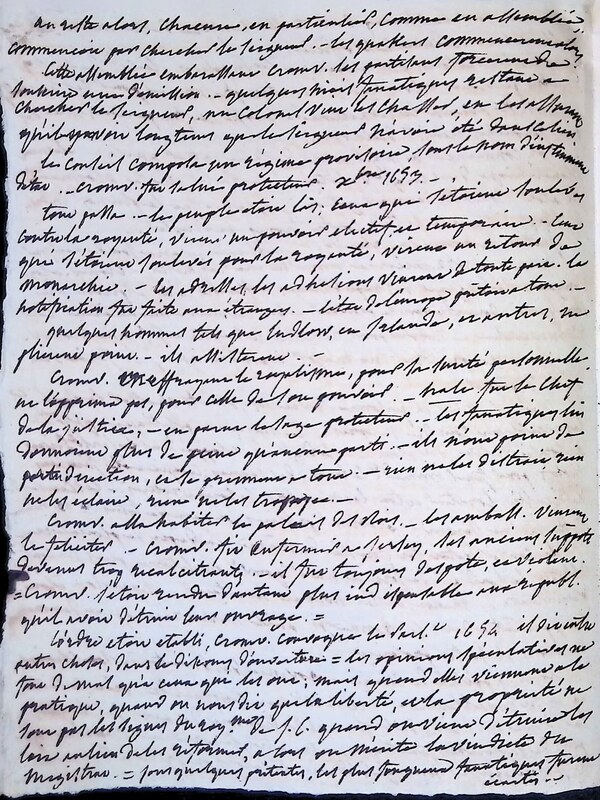 au reste alors, chacune en particulier, comme en assemblée,
commencoit par chercher le seigneur. - les quakers commencerent alors
cette assemblée embarassant Cromv. les partisans forcerent de
sa démission. - quelques uns fanatiques restant a
chercher le seigneur, un Colonel vint et chassa, en les assurant
qu'il y avoit longtems que le seigneur n'avoit été dans ce lieu
le Conseil composa un régime provisoire, sous le nom d'instrument
d'état. - Cromv. fut salué protecteur. xbre 1653 -
tout passa. - le peuple étoit las, ceux qui s'étoient soulevés
contre la royauté, virent un pouvoir électif et temporaire. - ceux
qui s'étoient soulevés pour la royauté, virent un retour de
monarchie. - les adresses, les adhésions vinrent de toute part. la
notification fut faite aux étrangers. - l'état de l'europe prêtoit a tout. -
quelques hommes tels que Ludlow, en Irlande, et autres, ne
plierent point. - ils
Cromv. effrayant le royalisme, pour la sureté personnelle
ne l'opprima pas, pour celle de son pouvoir. - hale fut le chef
de la justice, - en parut le sage protecteur. - les fanatiques lui
donnoient plus de peine qu'aucun parti. - ils n'ont point de
direction, et se prennent a tout. - rien ne les distrait, rien
ne les éclaire, rien ne les trompe. -
Cromv. alla habiter le palais des rois. - les ambass. vinrent
le feliciter - Cromv. fit enfermer a Jersey, ses anciens suppots
devenus trop recalcitrants. - il fut toujours despote, et violent.
= Cromv. s'etoit rendu d'autant plus indispensable aux republ.
qu'il avoit détruit leur ouvrage. =
l'ordre etoit établi, Cromv. convoqua le Parl.t 1654 et dit entre
autres choses, dans le discours d'ouverture = les opinions speculatives ne
font de mal qu'a ceux qui les ont; mais quand elles viennent a la
pratique, quand on nous dit que la liberté, et la propriété ne
sont pas les signes du roy.me de J. C. quand on vient détruire les
loix au lieu de les reformer, alors on mérite la vindicte du
magistrat. = sous quelques prétextes, les plus fougueux fanatiques furent
écartés. -